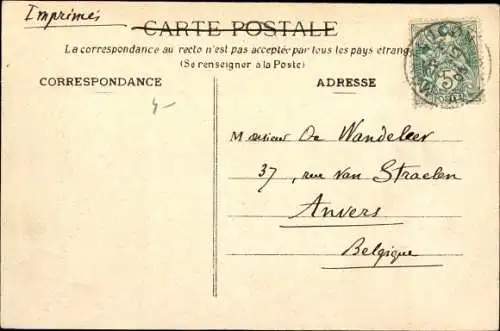 Imprimés
CARTE POSTALE
La correspondance au recto n'est pas acceptée par tous les pays étrang
(Se renseigner à la Poste)
CORRESPONDANCE
ADRESSE
5
Monsieur De Wandeleer
37, rue Van Straelen
Anvers
Belgique